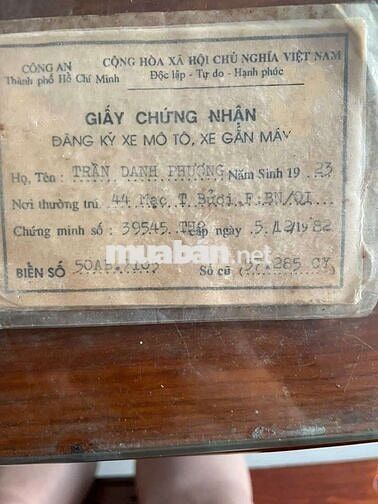 CÔNG AN
Thành phố Hồ Chí Minh
CỘNG HÒA XÃ HỘI CHỦ NGHĨA VIỆT NAM
Độc lập - Tự do - Hạnh phúc
GIẤY CHỨNG NHẬN
ĐĂNG KÝ XE MÔ TÔ, XE GẮN MÁY
Họ, Tên : TRẦN DANH PHƯƠNG Năm Sinh 19 23
Nơi thường trú 44 Mạc T. Bưởi F.BN/Q1
Chứng minh số : 39545 cấp ngày 5/12/1982
muaban.net
BIỂN SỐ Số cũ